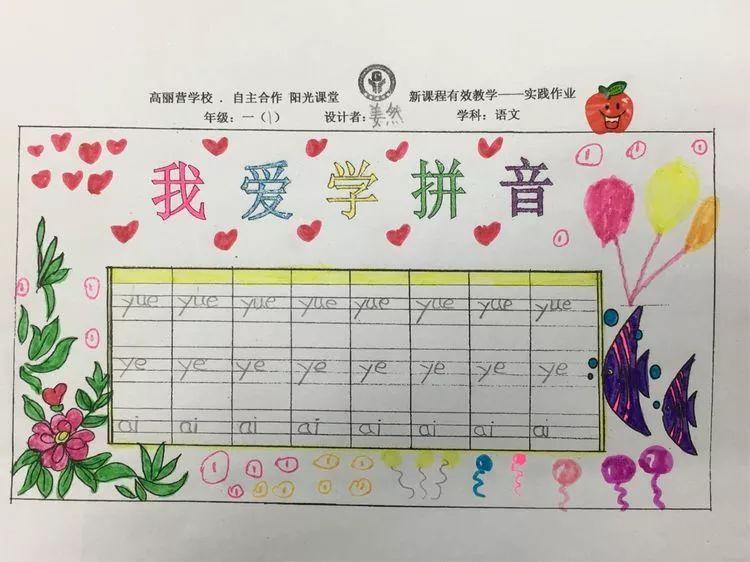 高丽营学校 . 自主合作 阳光课堂 新课程有效教学——实践作业
年级：一（1） 设计者：姜然 学科：语文
我爱学拼音
yue yue yue yue yue yue yue yue
ye ye ye ye ye ye ye ye
ai ai ai ai ai ai ai ai